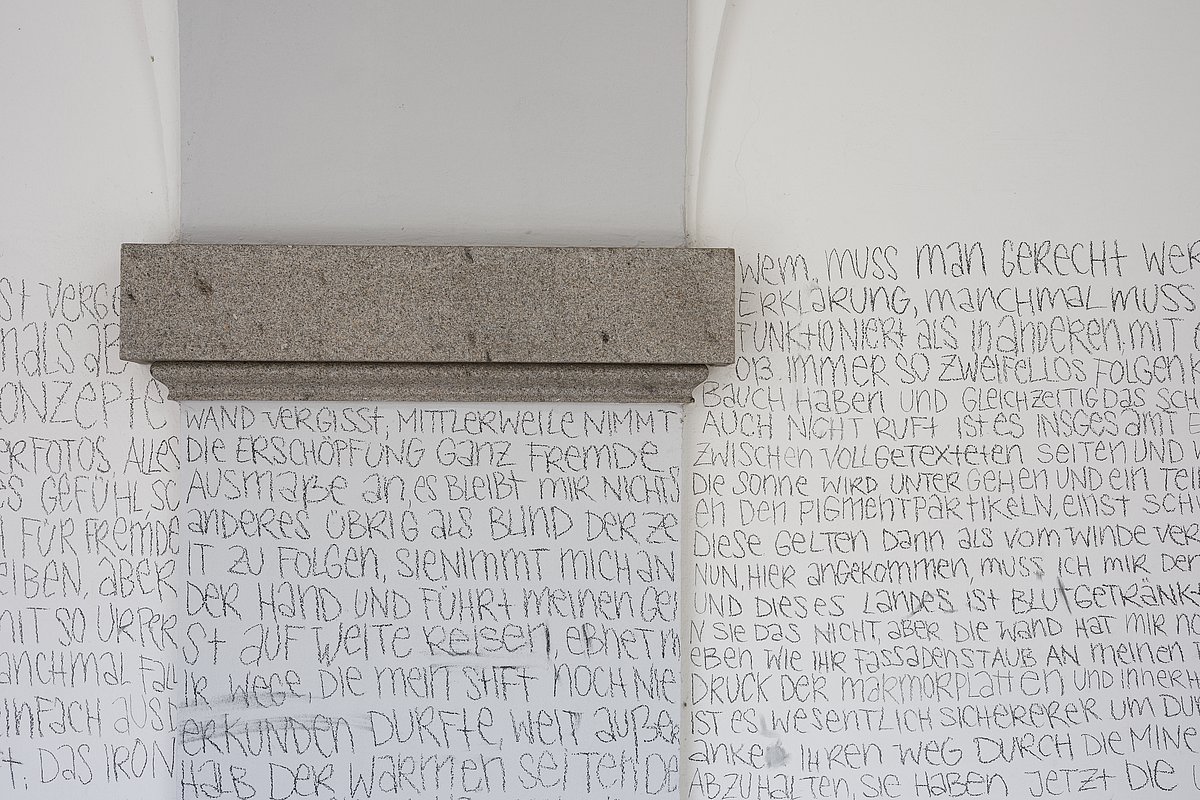 ST VERGE
MALS AB
ONZEPTE
ERFOTOS, ALLES
ES GEFÜHL SO
FÜR FREMDE
EIBEN, ABER
MIT SO URPER
ANCHMAL FALL
EINFACH AUS
T, DAS IRON
WAND VERGISST, MITTLERWEILE NIMMT
DIE ERSCHÖPFUNG GANZ FREMDE
AUSMAßE AN, ES BLEIBT MIR NICHTS
ANDERES ÜBRIG ALS BLIND DER ZE
IT ZU FOLGEN, SIE NIMMT MICH AN
DER HAND UND FÜHRT MEINEN GEI
ST AUF WEITE REISEN, EBNET M
IR WEGE DIE MEIN STIFT NOCH NIE
ERKUNDEN DURFTE, WEIT AUßER
HALB DER WARMEN SEITEN DE
WEM, MUSS MAN GERECHT WER
ERKLÄRUNG, MANCHMAL MUSS
FUNKTIONIERT ALS IN ANDEREN, MIT
OIß. IMMER SO ZWEIFELLOS FOLGEN K
BAUCH HABEN UND GLEICHZEITIG DAS SCH
AUCH NICHT RUFT IST ES INSGESAMT E
ZWISCHEN VOLLGETEXTETEN SEITEN UND
DIE SONNE WIRD UNTERGEHEN UND EIN TEIL
EN DEN PIGMENTPARTIKELN, EINST SCH
DIESE GELTEN DANN ALS VOM WINDE VER
NUN, HIER ANGEKOMMEN, MUSS ICH MIR DEN
UND DIESES LANDES IST BLUTGETRÄNK
N SIE DAS NICHT, ABER DIE WAND HAT MIR NE
EBEN WIE IHR FASSADENSTAUB AN MEINEN
DRUCK DER MARMORPLATTEN UND INNERH
IST ES WESENTLICH SICHERERER UM DUR
ANKE IHREN WEG DURCH DIE MINE
ABZUHALTEN, SIE HABEN JETZT DIE